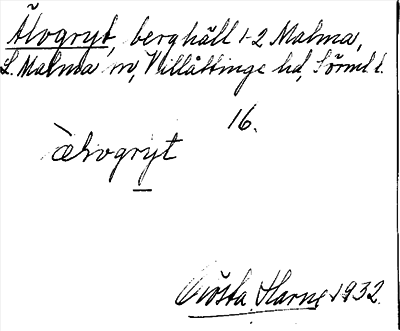 Älvgryt, berghäll 1-2 Malma,
L. Malma sn, Villåttinge hd, Sörml.l.
16.
älvgryt
Gösta Harne 1932.